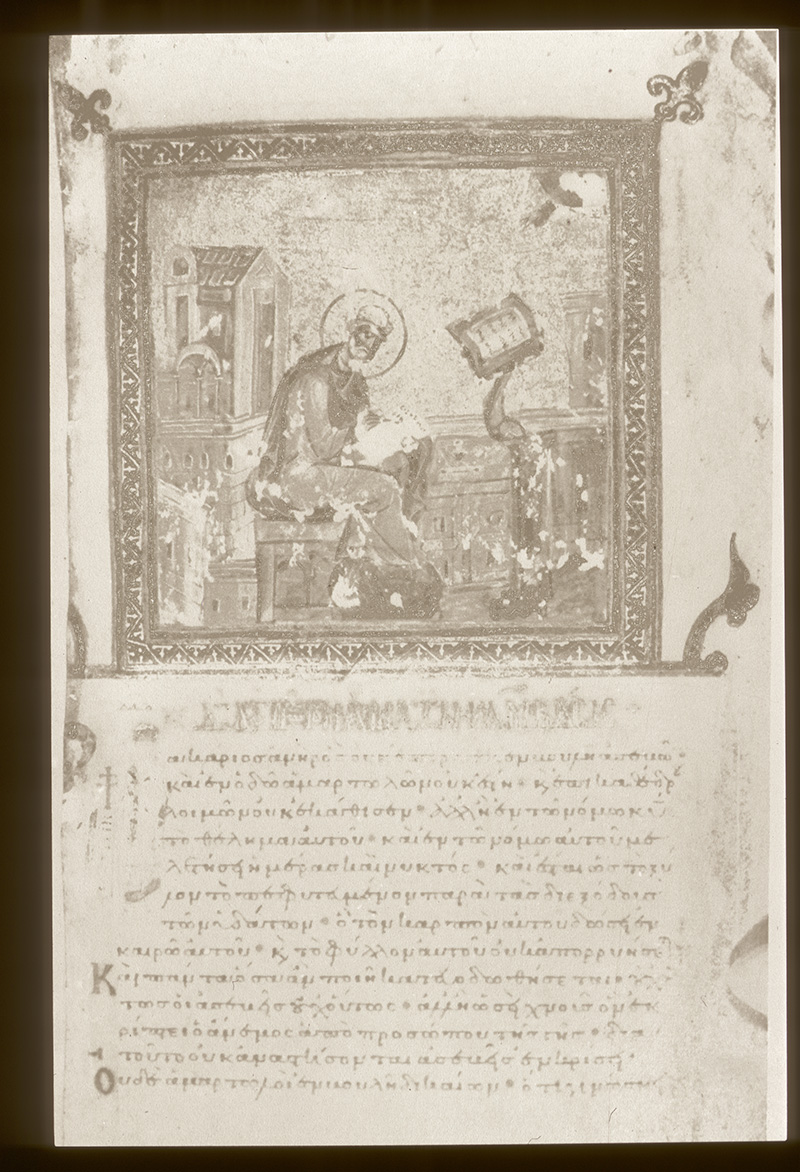 ακάριος ἀνὴρ ὃς οὐκ ἐν βουλῆ ἀσεβῶν·
καὶ ἐν ὁδῶ ἁμαρτωλῶν οὐκ ἔστη· κ ἐπὶ καθέδρ
λοιμῶν οὐκ ἐκάθισεν· ἀλλ ἢ ἐν τῶ νόμω κυ
τὸ θέλημα αὐτοῦ· καὶ ἐν τῶ νόμω αὐτοῦ με
λετήσει ἡμέρας καὶ νυκτός· καὶ ἔσται ὡς τὸ ξύ
λον τὸ πεφυτευμένον παρὰ τὰς διεξόδους
τῶν ὑδάτων· ὃ τὸν καρπὸν αὐτοῦ δώσει ἐν
καιρῶ αὐτοῦ· κ τὸ φύλλον αὐτοῦ οὐκ ἀπορρυήσε
Καὶ πάντα ὅσα ἂν ποιῆ κατευοδωθήσεται
τως οἱ ἀσεβεῖς οὐχ οὕτως· ἀλλ ἢ ὡσεὶ χνοῦς ὃν ἐκ
ρίπτει ὁ ἄνεμος ἀπὸ προσώπου τῆς γῆς· διὰ
τοῦτο οὐκ ἀναστήσονται ἀσεβεῖς ἐν κρίσει·
Οὐδὲ ἁμαρτωλοὶ ἐν βουλῆ δικαίων· ὅτι